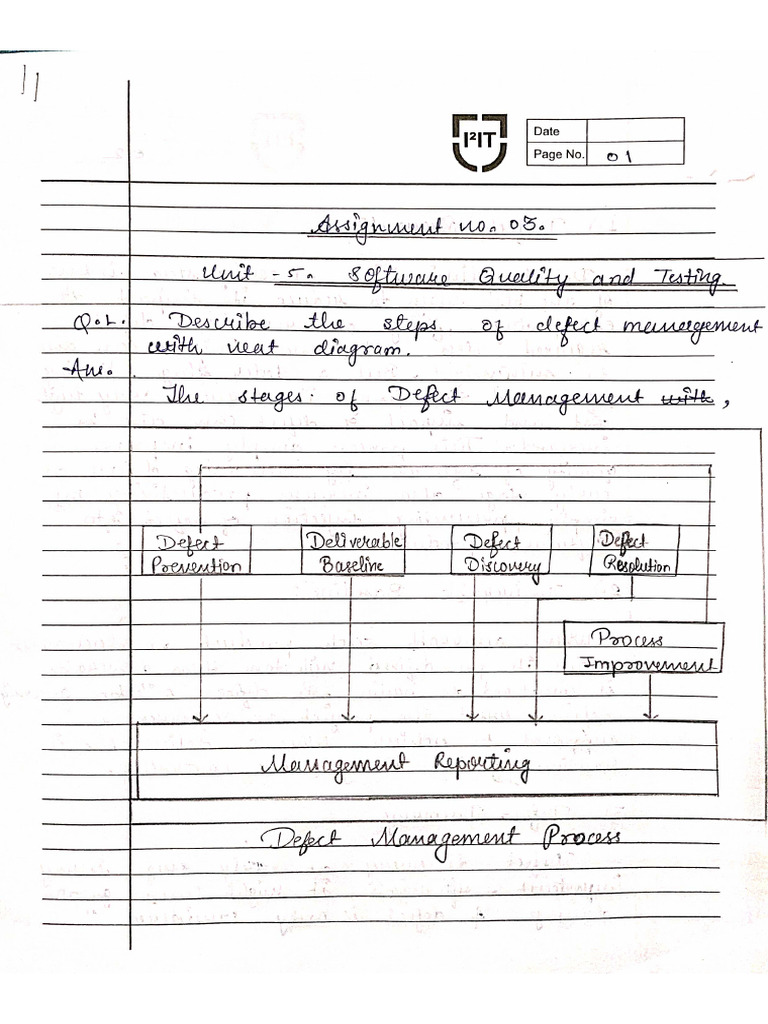 11
I²IT
Date
Page No. 01
Assignment no. 03.
Unit - 5. Software Quality and Testing.
Q.1. Describe the steps of defect management
with neat diagram.
Ans.
The stages of Defect Management with,
Defect Prevention
Deliverable Baseline
Defect Discovery
Defect Resolution
Process Improvement
Management Reporting
Defect Management Process